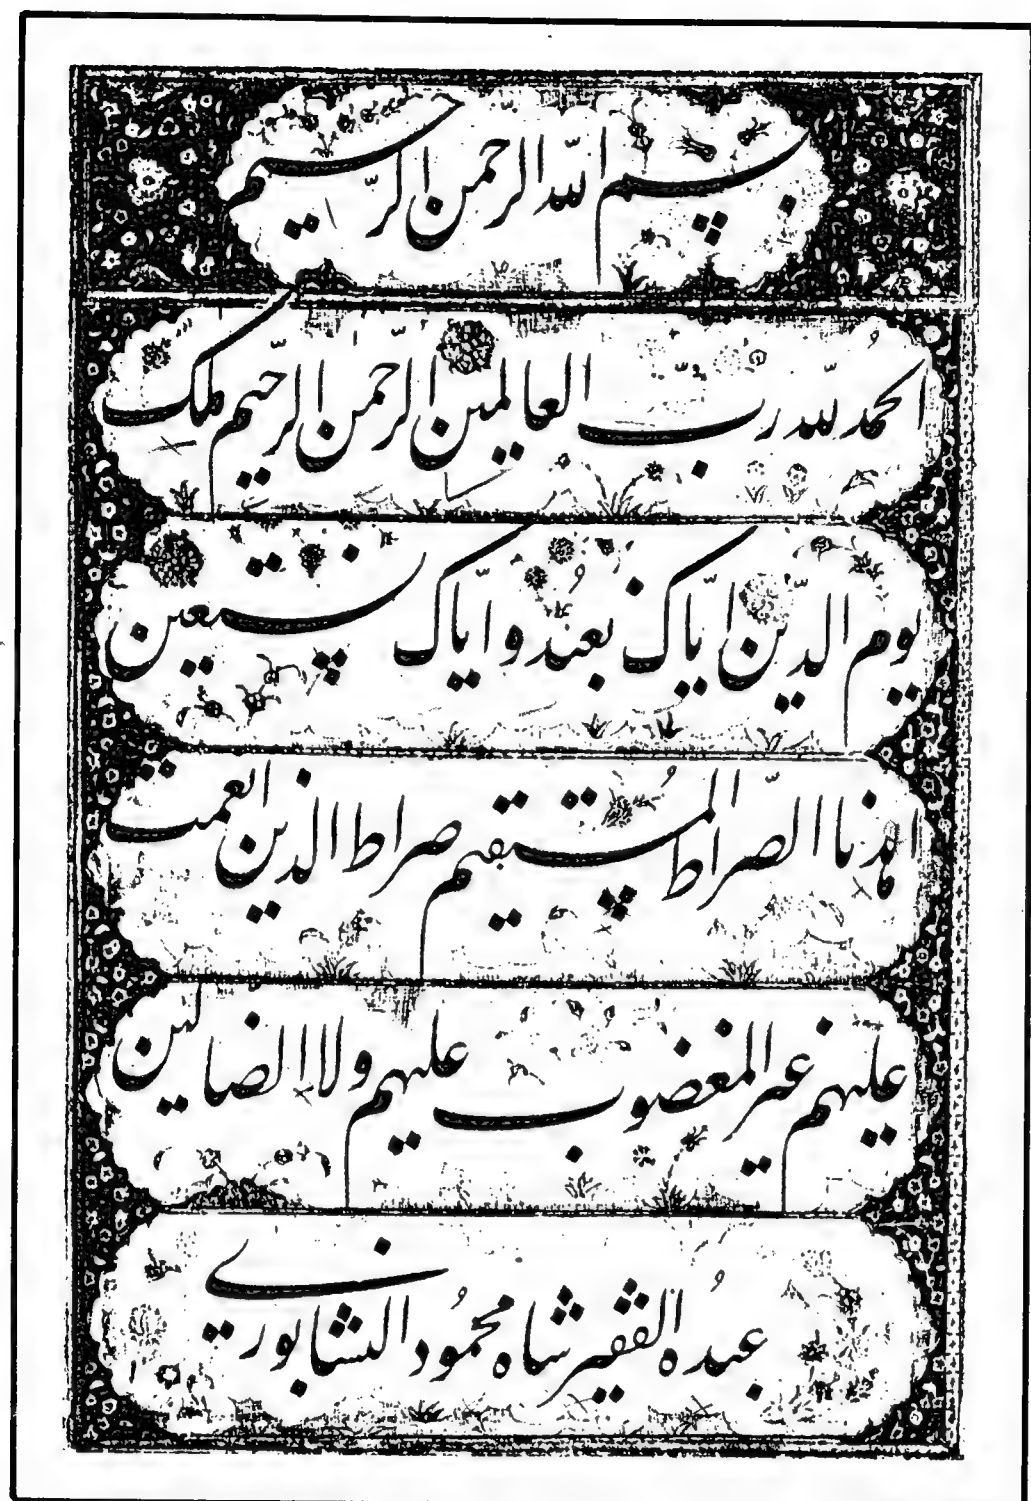 بسم الله الرحمن الرّحيم
الحمدُ لله رب العالمين الرّحمن الرّحيم ملك
يوم الدّين ايّاك نعبدُ و ايّاك نستعين
اهدنا الصّراط المُستقيم صراط الذين انعمت
عليهم غير المغضوب عليهم ولا الضالين
عبدُه الفقير شاه محمُود النشابوری